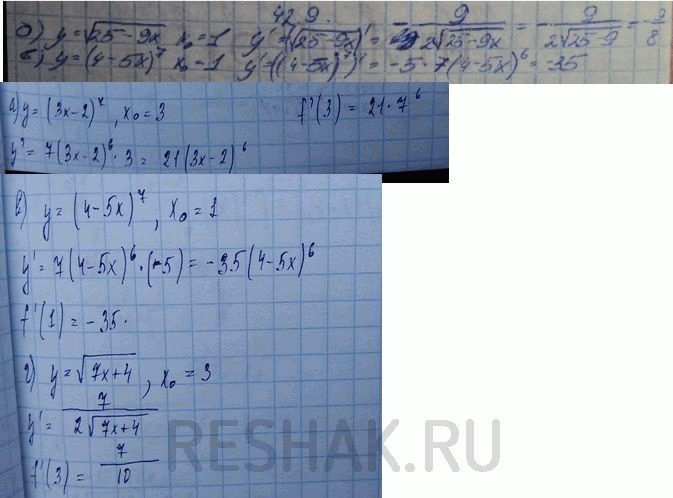 42.9.
б) y = √(25-9x) x₀ = 1 y' = (√(25-9x))' = - 9/(2√(25-9x)) = - 9/(2√(25-9)) = - 9/8
в) y = (4-5x)⁷ x₀ = 1 y' = ((4-5x)⁷)' = -5·7(4-5x)⁶ = -35
а) y = (3x-2)⁷, x₀ = 3 f'(3) = 21·7⁶
y' = 7(3x-2)⁶·3 = 21(3x-2)⁶
в) y = (4-5x)⁷, x₀ = 1
y' = 7(4-5x)⁶·(-5) = -35(4-5x)⁶
f'(1) = -35.
г) y = √(7x+4), x₀ = 3
y' = 7/(2√(7x+4))
f'(3) = 7/10
RESHAK.RU